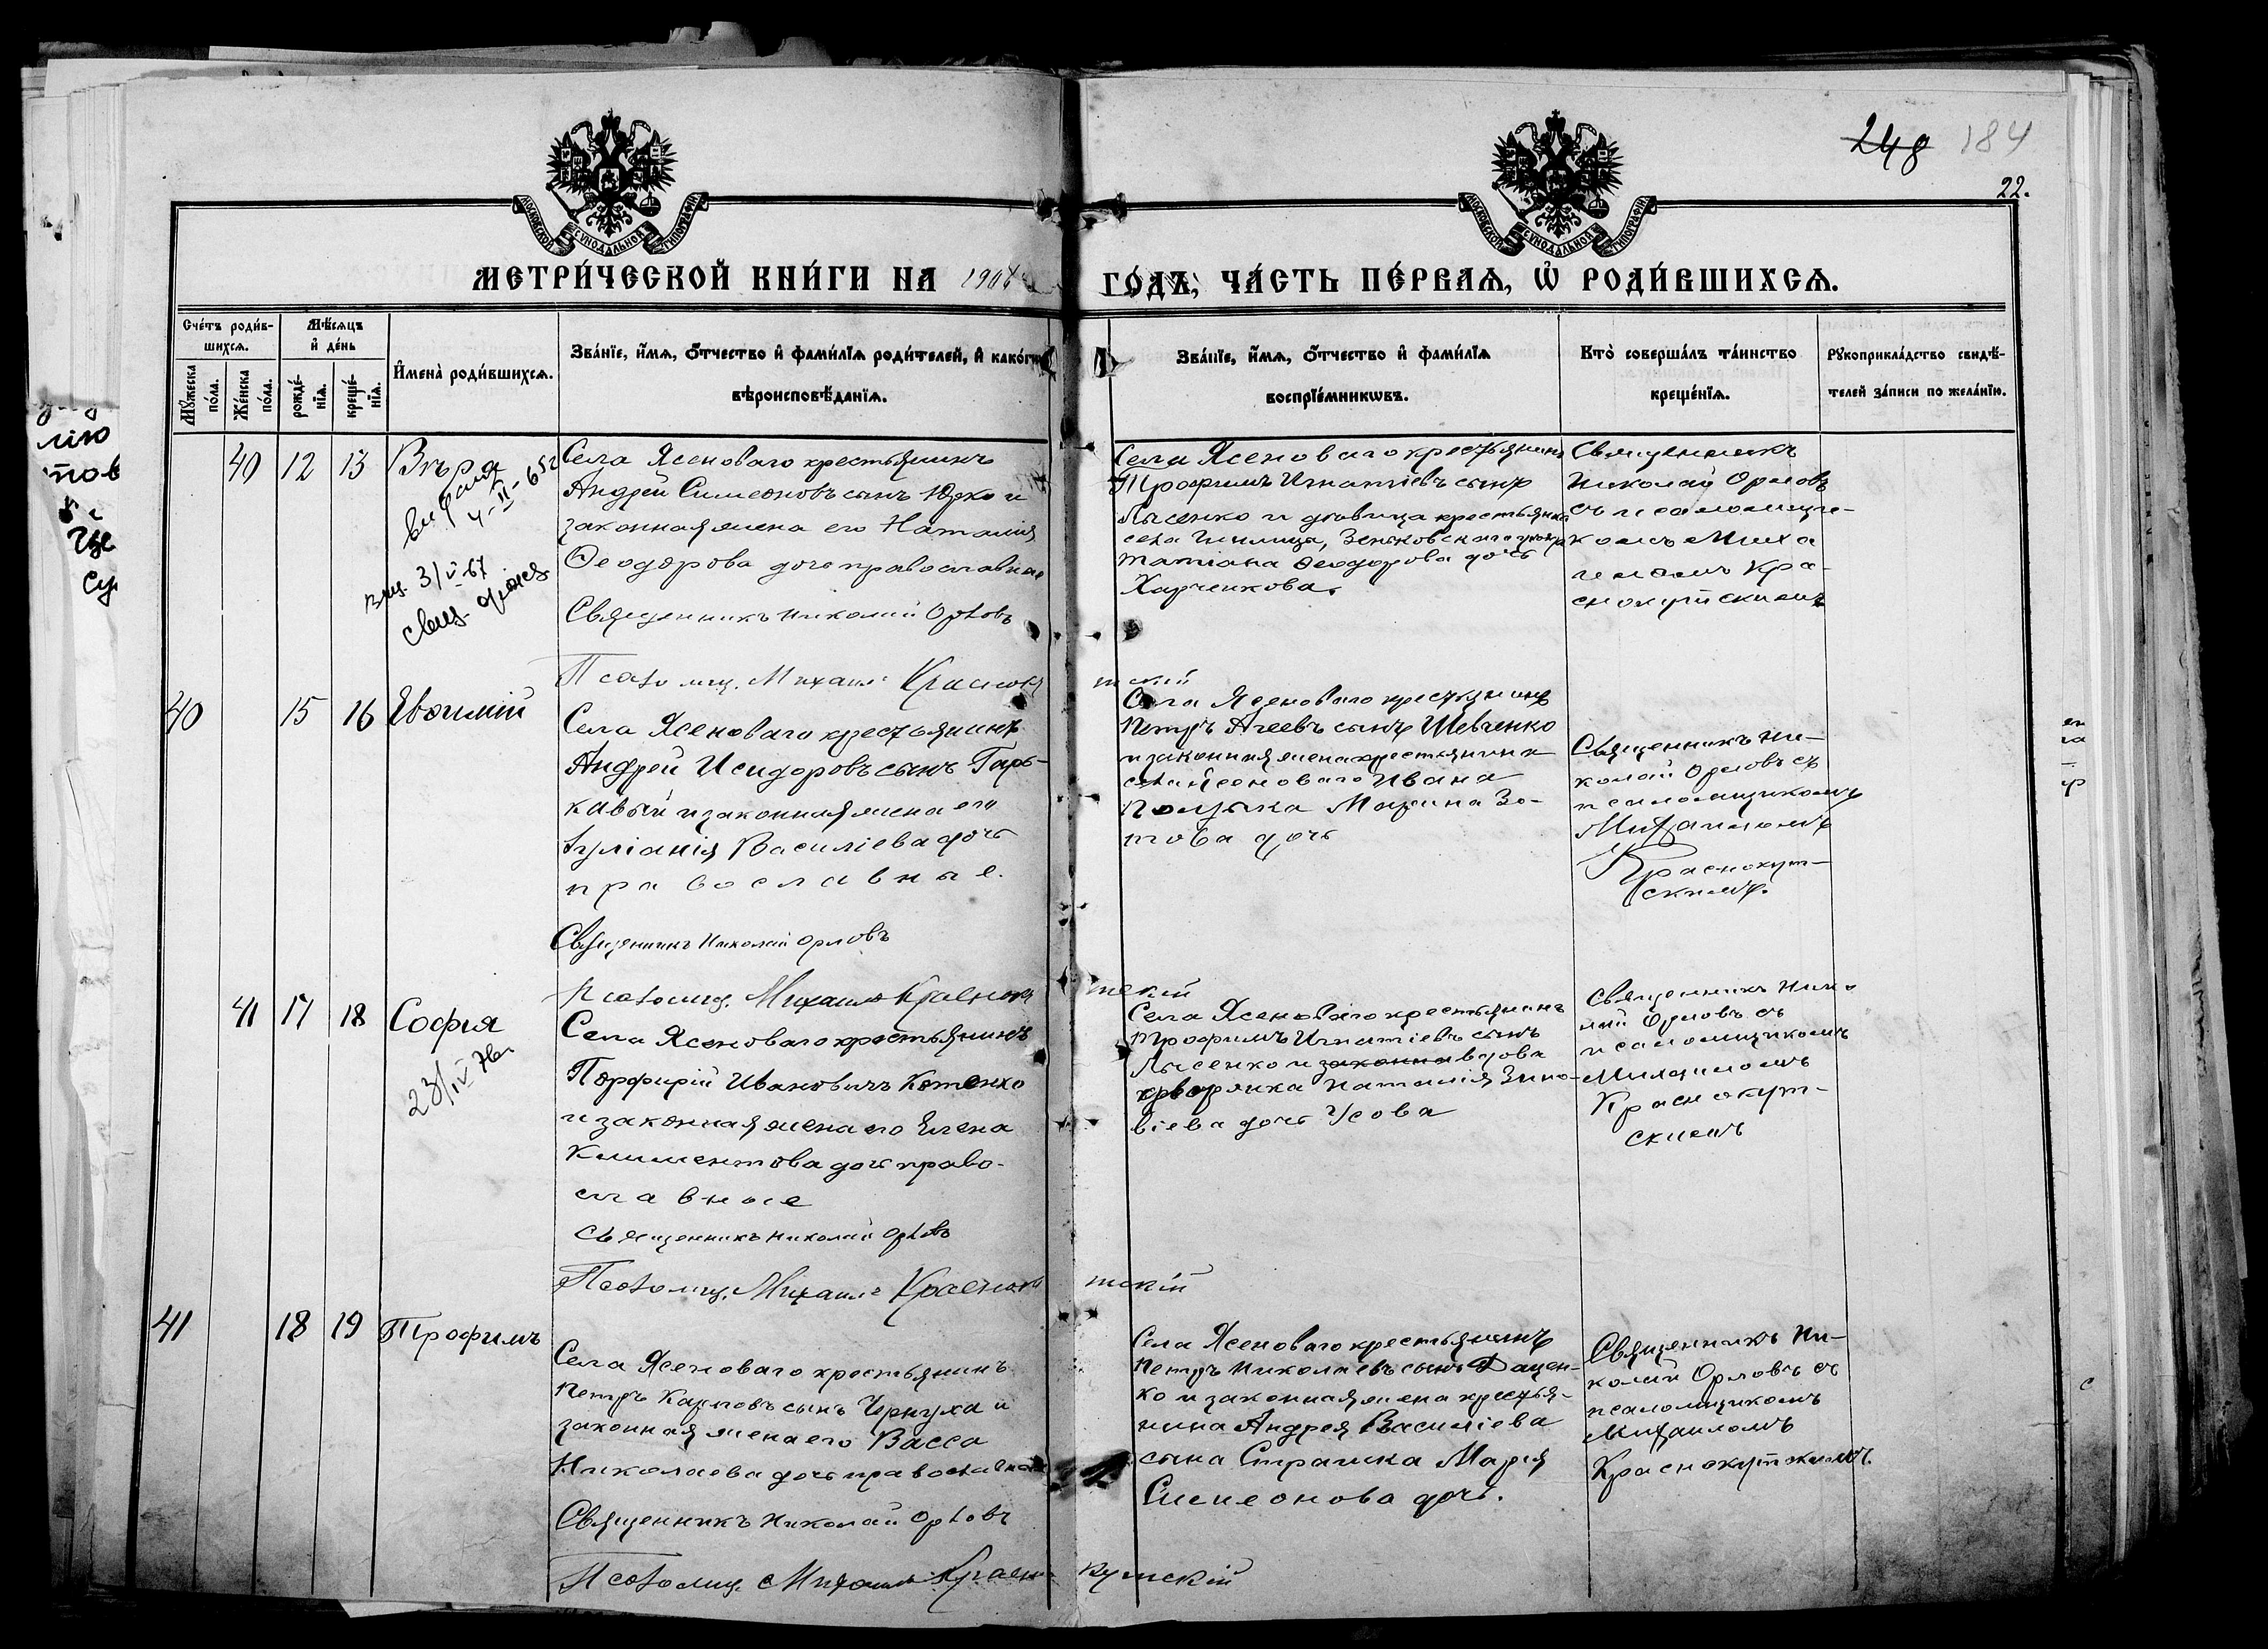 248 184
22.
МОСКОВСКОЙ СѴНОДАЛЬНОЙ ТИПОГРАФІИ
МОСКОВСКОЙ СѴНОДАЛЬНОЙ ТИПОГРАФІИ
МЕТРИ́ЧЕСКОЙ КНИ́ГИ НА 190
ГО́ДЪ, ЧА́СТЬ ПЕ́РВАѦ, Ѡ҆ РОДИ́ВШИХСѦ.
Сче́тъ роди́в-
шихсѧ.
Мꙋ́жеска по́ла.
Же́нска по́ла.
Мѣ́сѧцъ
и҆ де́нь
рожде́-
нїѧ.
креще́-
нїѧ.
И҆мена̀ роди́вшихсѧ.
Зва́нїе, и҆́мѧ, ѻ҆́тчество и҆ фами́лїѧ роди́телей, и҆ како́гѡ
вѣроисповѣ́данїѧ.
Зва́нїе, и҆́мѧ, ѻ҆́тчество и҆ фами́лїѧ
воспрїе́мникѡвъ.
Кто̀ соверша́лъ та́инство
креще́нїѧ.
Рꙋкоприкла́дство свидѣ́-
телей за́писи по жела́нїю.
40 12 13 Вѣра
4-II-652
3/V 67
Села Ясеноваго крестьянинъ
Андрей Симеоновъ сынъ Юдко и
законная жена его Наталія
Ѳеодорова дочь православные
Священникъ Николай Орловъ
Псаломщ. Михаилъ Краснокутскій
Села Ясеноваго крестьянинъ
Трофимъ Игнатіевъ сынъ
Лысенко и дѣвица крестьянка
Татіана Ѳеодорова дочь
Харченкова.
Священникъ
Николай Орловъ
съ псаломщи-
комъ Миха
иломъ Кра-
снокутскимъ
40 15 16 Евѳимій
Села Ясеноваго крестьянинъ
Андрей Исидоровъ сынъ Гарь-
кавый и законная жена его
Іуліанія Василіева дочь
православные.
Священникъ Николай Орловъ
Псаломщ. Михаилъ Краснокутскій
Села Ясеноваго крестьянинъ
Петръ Агеевъ сынъ Шевченко
и законная жена крестьянина
села Ясеноваго Ивана
Марина Зо-
това дочь
Священникъ Ни-
колай Орловъ съ
псаломщикомъ
Михаиломъ
Краснокут-
скимъ.
41 17 18 София
23/IV
Села Ясеноваго крестьянинъ
Порфирій Ивановичъ Котенко
и законная жена его Елена
Климентова дочь право-
славные
Священникъ Николай Орловъ
Псаломщ. Михаилъ Краснокутскій
Села Ясеноваго крестьянинъ
Трофимъ Игнатіевъ сынъ
Лысенко и законна вдова
дворянка Наталія Зино-
віева дочь Усова
Священникъ Нико
лай Орловъ съ
псаломщикомъ
Михаиломъ
Краснокут-
скимъ
41 18 19 Трофимъ
Села Ясеноваго крестьянинъ
Петръ Карповъ сынъ Чернуха и
законная жена его Васса
Николаева дочь православные
Священникъ Николай Орловъ
Псаломщ. Михаилъ Краснокутскій
Села Ясеноваго крестьянинъ
Петръ Николаевъ сынъ Дацен-
ко и законная жена крестья-
нина Андрея Василіева
сына Страшка Марія
Симеонова дочь.
Священникъ Ни-
колай Орловъ съ
псаломщикомъ
Михаиломъ
Краснокутскимъ.